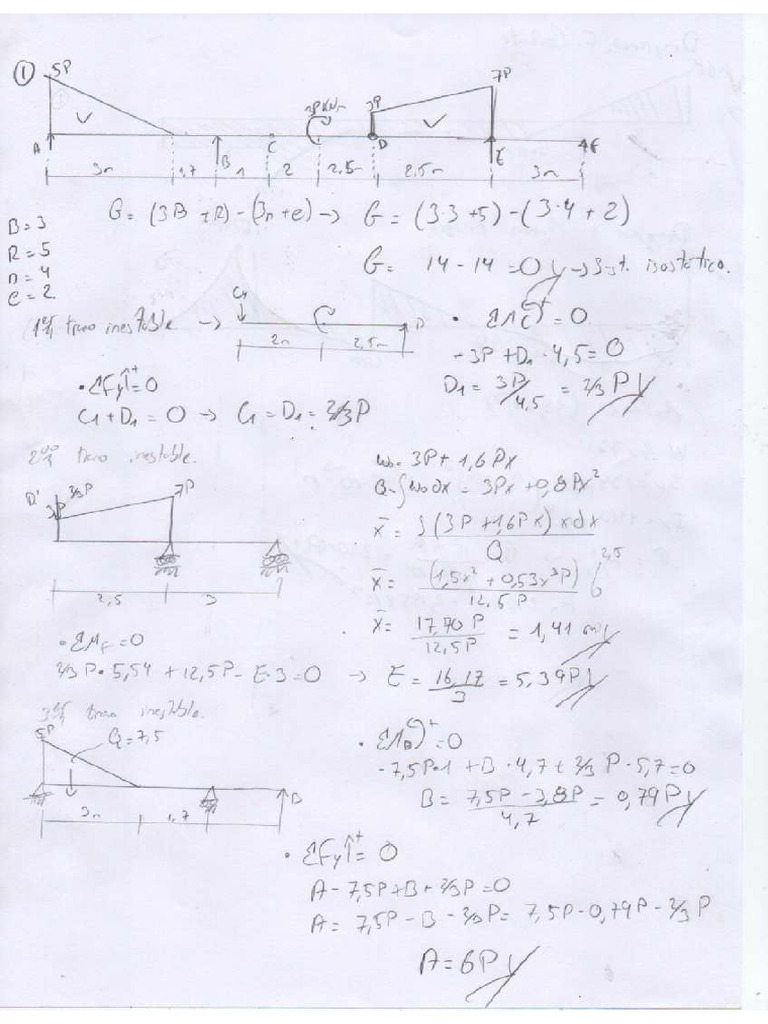 ①
5P
3P
7P
A
B
C
D
E
F
3m
1,7
1
2
2,5m
2,5m
3m
G = (3B + R) - (3n + e) → G = (3·3 + 5) - (3·4 + 2)
B = 3
R = 5
n = 4
e = 2
G = 14 - 14 = 0 → Sist. isostático.
1er tramo inestable →
C1
D
2m
2,5m
• ΣMC = 0
- 3P + D1 · 4,5 = 0
D1 = 3P/4,5 = 2/3 P
• ΣFy ↑+ = 0
C1 + D1 = 0 → C1 = D1 = 2/3P
2do tramo inestable.
D' 2/3P
3P
7P
2,5
3
W0 = 3P + 1,6Px
Q = ∫W0 dx = 3Px + 0,8Px²
x̄ = ∫(3P + 1,6Px) x dx / Q
x̄ = (1,5x² + 0,53x³P) / 12,5P
2,5
x̄ = 17,70P / 12,5P = 1,41 m
• ΣMF = 0
2/3 P · 5,54 + 12,5P - E·3 = 0 → E = 16,17/3 = 5,39P
3er tramo inestable.
5P
Q = 7,5
3m
1,7
B
• ΣMA = 0
- 7,5P·1 + B · 4,7 + 2/3 P · 5,7 = 0
B = 7,5P - 3,8P / 4,7 = 0,79P
• ΣFy ↑+ = 0
A - 7,5P + B + 2/3P = 0
A = 7,5P - B - 2/3P = 7,5P - 0,79P - 2/3P
A = 6P